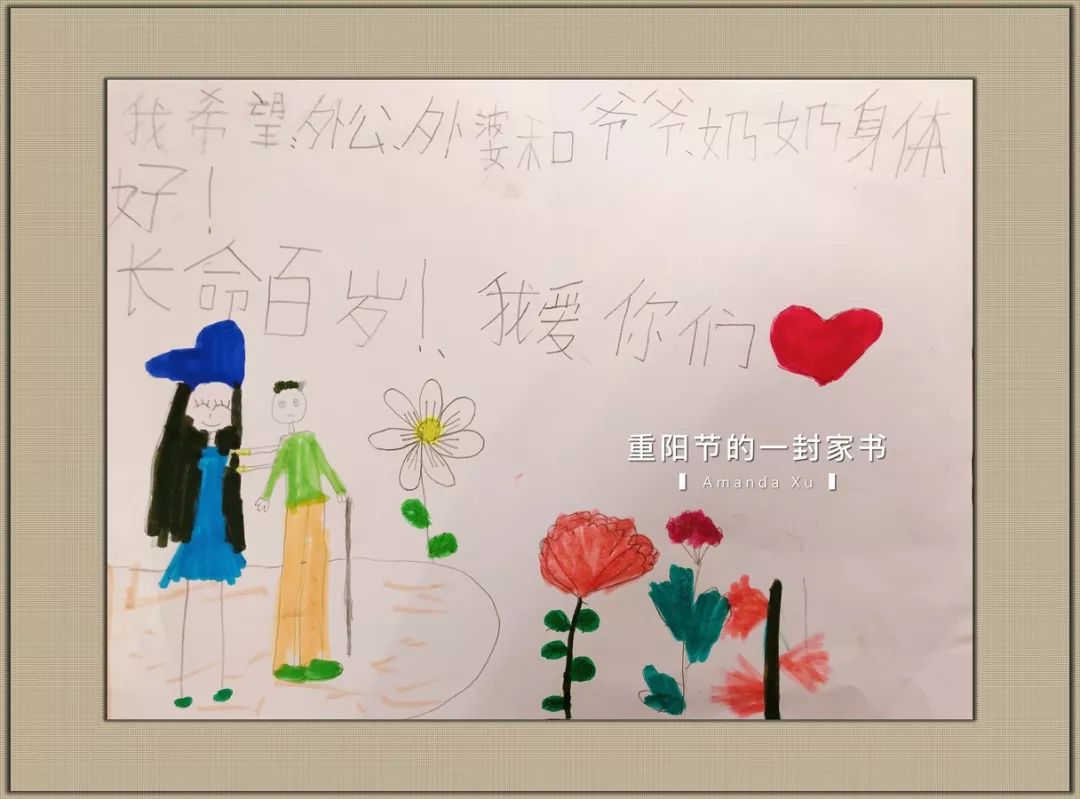 我希望，外公、外婆和爷爷、奶奶身体
好！
长命百岁！、我爱你们
重阳节的一封家书
Amanda Xu